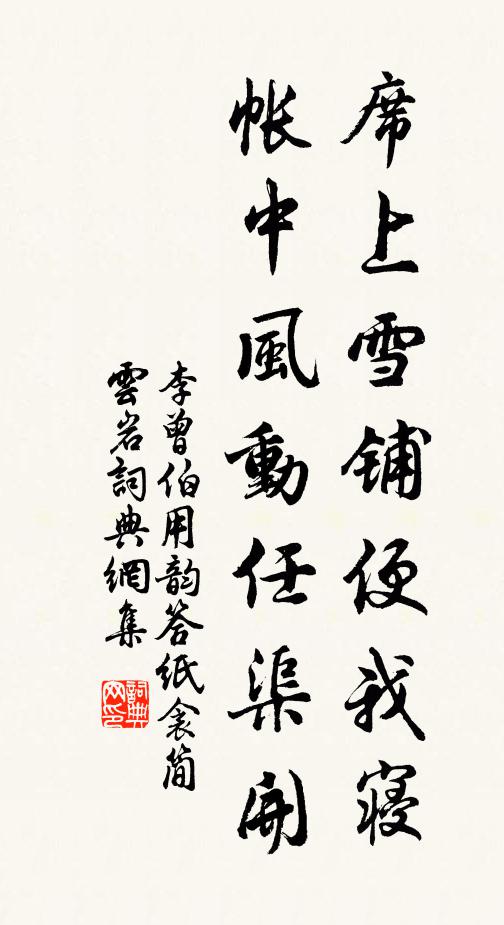 席上雪铺便我寝
帐中風動任渠開
李曾伯用韵答纸衾简
雲岩詞典網集
詞典网印